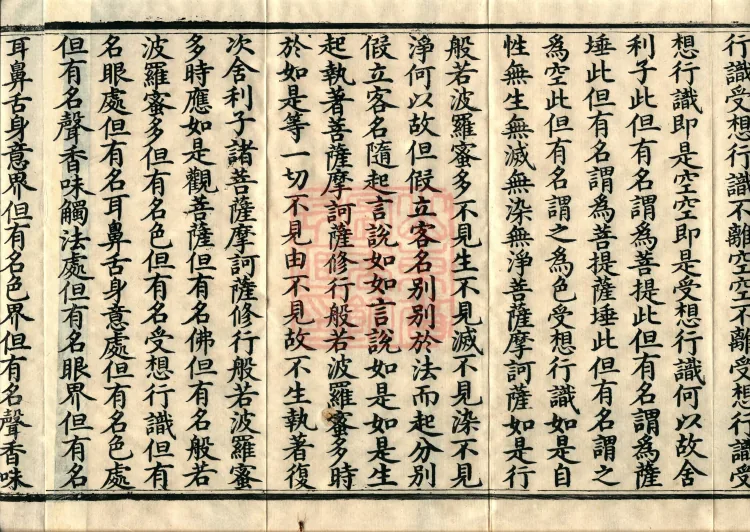 行識受想行識不離空空不離受想行識受
想行識即是空空即是受想行識何以故舍
利子此但有名謂為菩提此但有名謂為薩
埵此但有名謂為菩提薩埵此但有名謂之
為空此但有名謂之為色受想行識如是自
性無生無滅無染無淨菩薩摩訶薩如是行
般若波羅蜜多不見生不見滅不見染不見
淨何以故但假立客名別別於法而起分別
假立客名隨起言說如如言說如是如是生
起執著菩薩摩訶薩修行般若波羅蜜多時
於如是等一切不見由不見故不生執著復
次舍利子諸菩薩摩訶薩修行般若波羅蜜
多時應如是觀菩薩但有名佛但有名般若
波羅蜜多但有名色但有名受想行識但有
名眼處但有名耳鼻舌身意處但有名色處
但有名聲香味觸法處但有名眼界但有名
耳鼻舌身意界但有名色界但有名聲香味